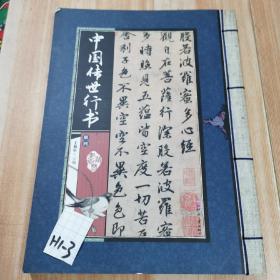 般若波羅蜜多心經
觀自在菩薩行深般若波羅蜜
多時照見五蘊皆空度一切苦厄
舍利子色不異空空不異色色即
中国传世行书
H1-3